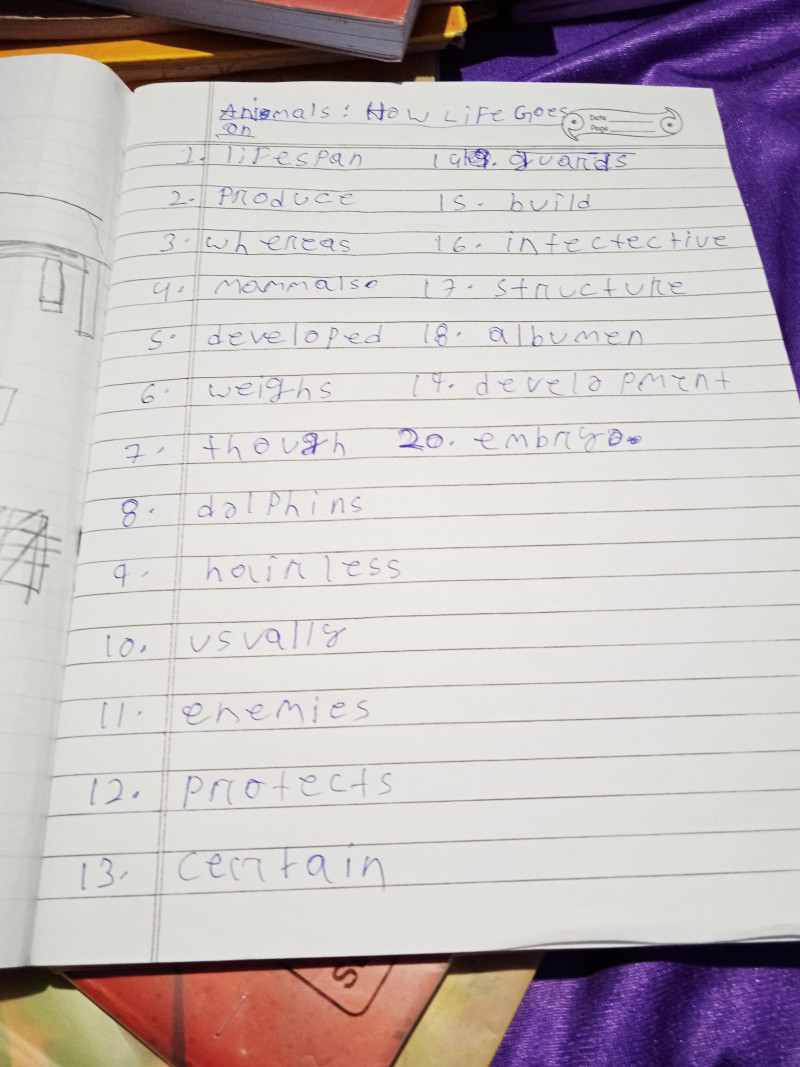 Animals: How Life Goes
on
Date
Page
1. lifespan
2. Produce
3. whereas
4. mammals
5. developed
6. weighs
7. though
8. dolphins
9. hairless
10. usually
11. enemies
12. protects
13. certain
14. guards
15. build
16. infectective
17. structure
18. albumen
19. development
20. embryo